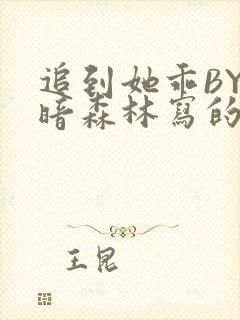 追到她乖BY
暗森林寫的
王昆